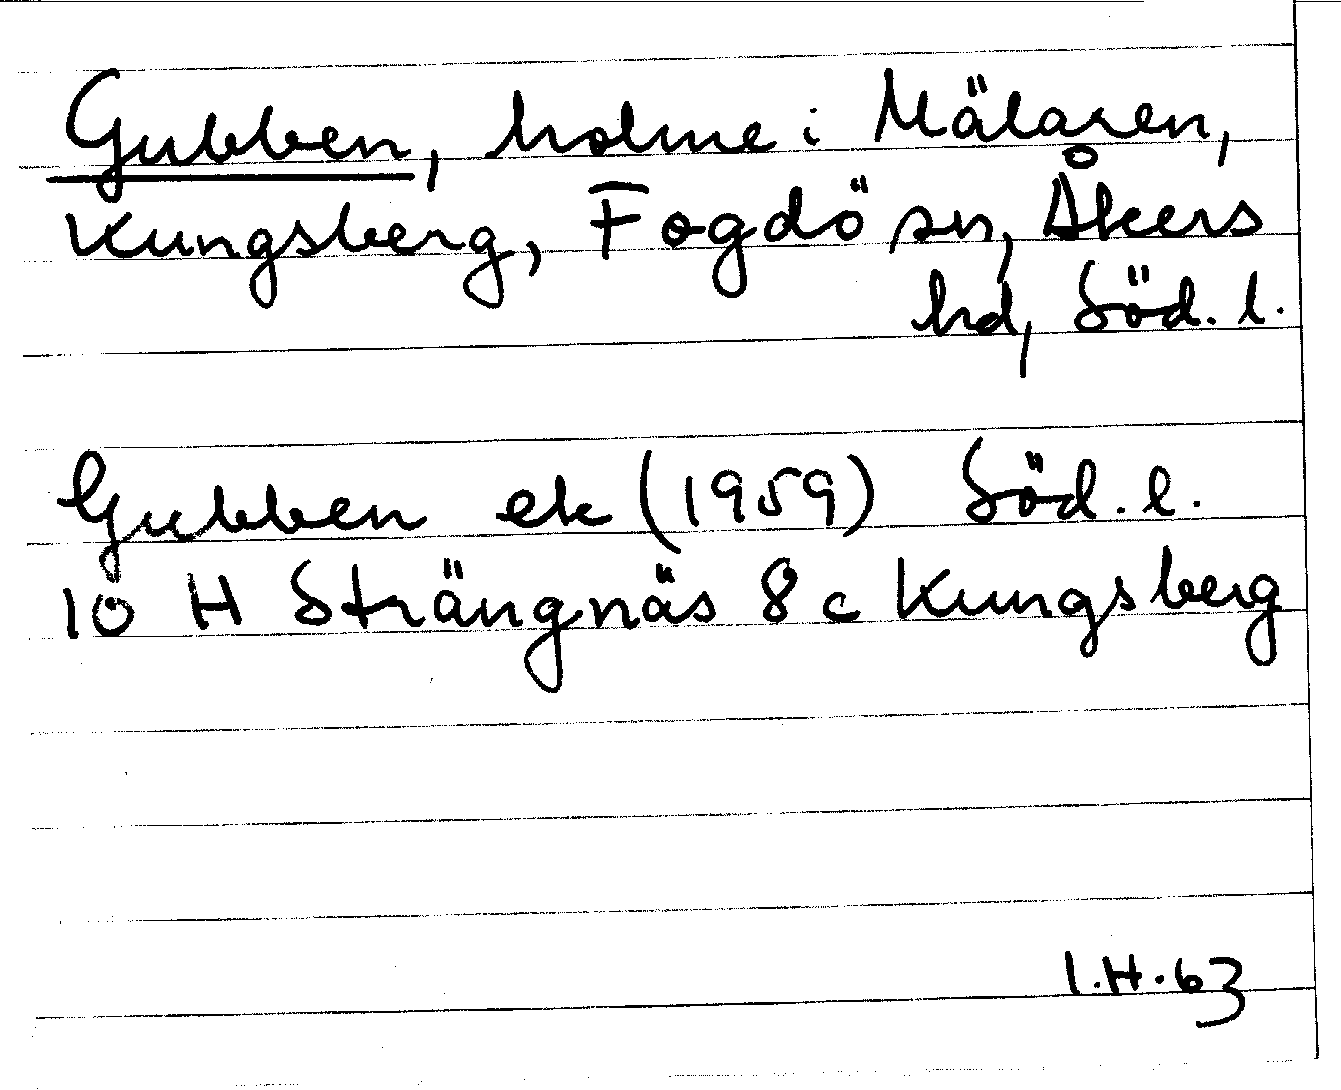 Gubben, holme i Mälaren,
Kungsberg, Fogdö sn, Åkers
hd, Söd. l.
Gubben ek (1959) Söd. l.
10 H Strängnäs 8 c Kungsberg
I.H.63